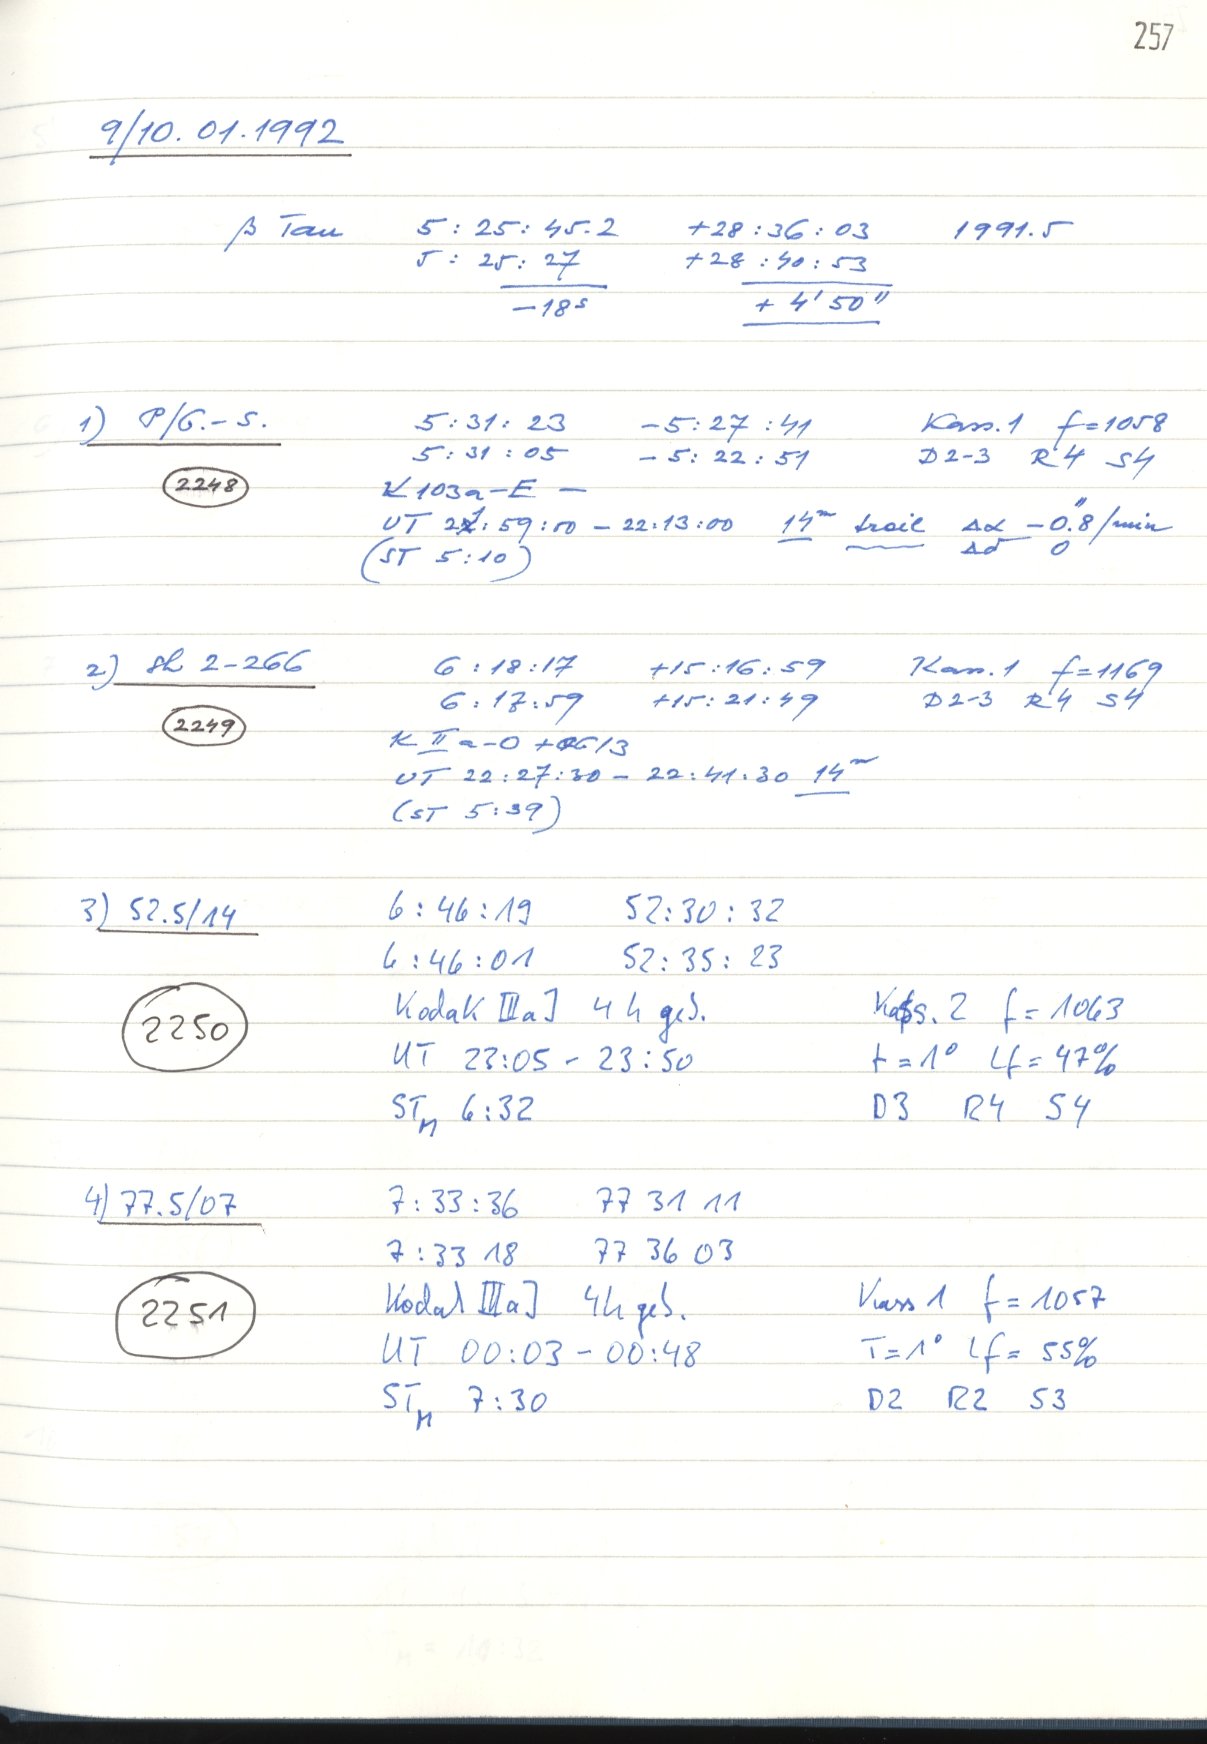 257
9/10.01.1992
β Tau 5:25:45.2 +28:36:03 1991.5
5:25:27 +28:40:53
-18s +4'50"
1) P/G.-S. 5:31:23 -5:27:41 Kass.1 f=1058
5:31:05 -5:22:51 D2-3 R4 S4
2248 K 103a-E —
UT 21:59:00 - 22:13:00 14m trail Δα -0."8/min
(ST 5:10) Δδ 0
2) Sh 2-266 6:18:17 +15:16:59 Kass.1 f=1169
6:17:59 +15:21:49 D2-3 R4 S4
2249 K IIa-O + GG13
UT 22:27:30 - 22:41:30 14m
(ST 5:39)
3) 52.5/14 6:46:19 52:30:32
6:46:01 52:35:23
2250 Kodak IIIaJ 4h geb. Kass. 2 f=1063
UT 23:05 - 23:50 t=1° Lf=47%
STM 6:32 D3 R4 S4
4) 77.5/07 7:33:36 77 31 11
7:33 18 77 36 03
2251 Kodak IIIaJ 4h geb. Kass 1 f=1057
UT 00:03 - 00:48 T=1° Lf=55%
STM 7:30 D2 R2 S3